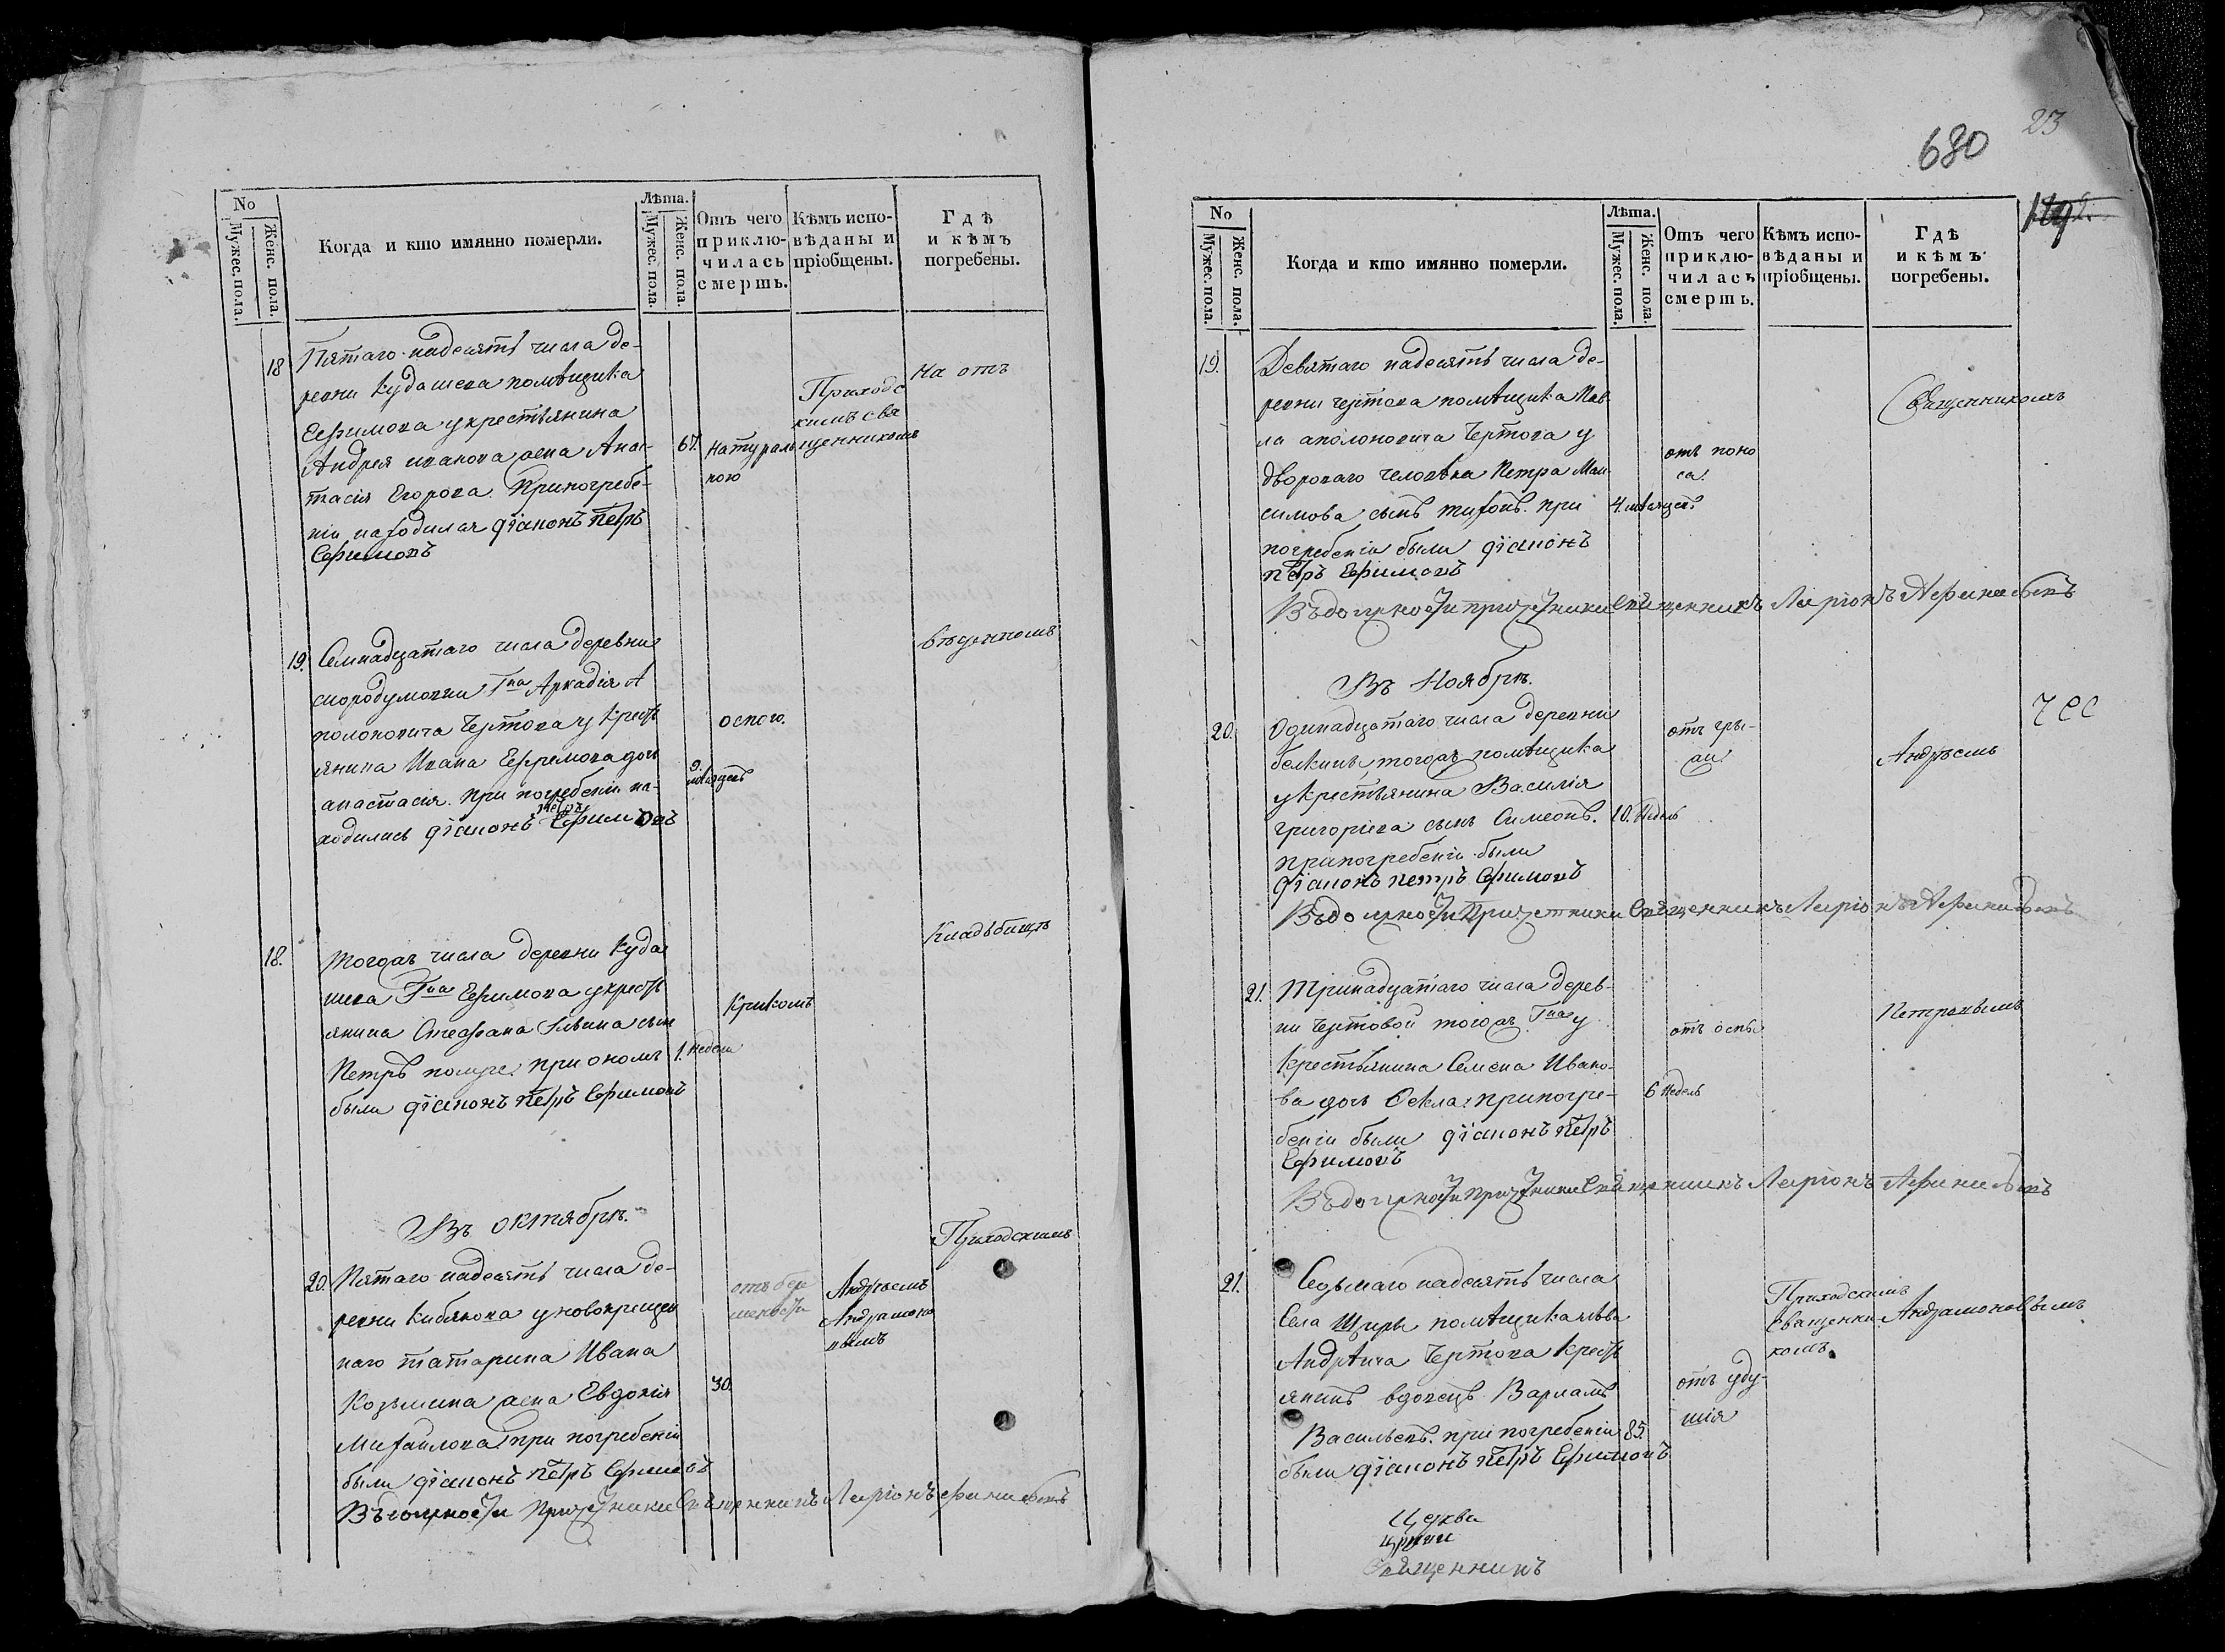 No
Мужес. пола.
Женс. пола.
Когда и кто имянно померли.
Лѣта.
Мужес. пола.
Женс. пола.
Отъ чего
приклю-
чилась
смерть.
Кѣмъ испо-
вѣданы и
пріобщены.
Гдѣ
и кѣмъ
погребены.
18
Пятаго надесять числа де-
ревни Кудашева помѣщика
Ефимова укрестьянина
Андрея иванова жена Анас-
тасія Егорова. Припогребе-
ніи находился діаконъ Петръ
Ефимовъ
67.
натураль
ною
Приходс
кимъ свя
щенникомъ
На отъ
19.
Семнадцатаго числа деревни
скородумовки Гна Аркадія А
полоновича Чертова у крестъ
янина Ивана Ефремова дочь
анастасія. при погребеніи на-
ходились діаконъ Петръ Ефимовъ
9.
мѣсяцовъ
оспою.
веденномъ
18.
Тогожъ числа деревни Куда
шева Гна Ефимова укресть
янина Стефана сынъ
Петръ при ономъ
были діаконъ Петръ Ефимовъ
1. недели
Крикомъ
Кладъбищѣ
Въ октябрѣ.
20.
Пятаго надесять числа де-
ревни Кибякова уновокрещен
наго татарина Ивана
Козьмина жена Евдокія
Михайлова при погребеніи
были діаконъ Петръ Ефимовъ
30.
отъ бере
менности
Андреемъ
Андрамоно
вымъ
Приходскимъ
Причетники Священникъ Ларіонъ
680
23
No
Мужес. пола.
Женс. пола.
Когда и кто имянно померли.
Лѣта.
Мужес. пола.
Женс. пола.
Отъ чего
приклю-
чилась
смерть.
Кѣмъ испо-
вѣданы и
пріобщены.
Гдѣ
и кѣмъ
погребены.
19.
Девятаго надесять числа де-
ревни чертова помѣщика Пав
ла аполоновича Чертова у
дворового человѣка Петра Мак
симова сынъ тихонъ. при
погребеніи были діаконъ
петръ Ефимовъ
4. мѣсяцовъ
отъ поно
са.
Священникомъ
Причетники Священникъ Ларіонъ
Въ Ноябрѣ.
20.
Одинадцатаго числа деревни
белкинъ тогожъ помѣщика
укрестьянина Василія
григорьева сынъ Симеонъ.
припогребеніи были
діаконъ петръ Ефимовъ
10. недель
отъ гры-
жи
Андреемъ
Причетники Священникъ Ларіонъ
21.
Тринадцатаго числа дерев-
ни чертовой тогожъ Гна у
крестьянина Семена Ивано-
ва дочь Фекла припогре-
беніи были діаконъ Петръ
Ефимовъ
6 недель
отъ оспы
Петровымъ
Причетники Священникъ Ларіонъ
21.
Седьмаго надесять числа
Села Щиры помѣщика льва
Андрѣича Чертова кресть
янинъ вдовецъ Варламъ
Васильевъ. при погребеніи
были діаконъ Петръ Ефимовъ
85.
отъ уду-
шія
Приходскимъ
Священни
комъ
Андрамоновымъ
Церкви
Священникъ